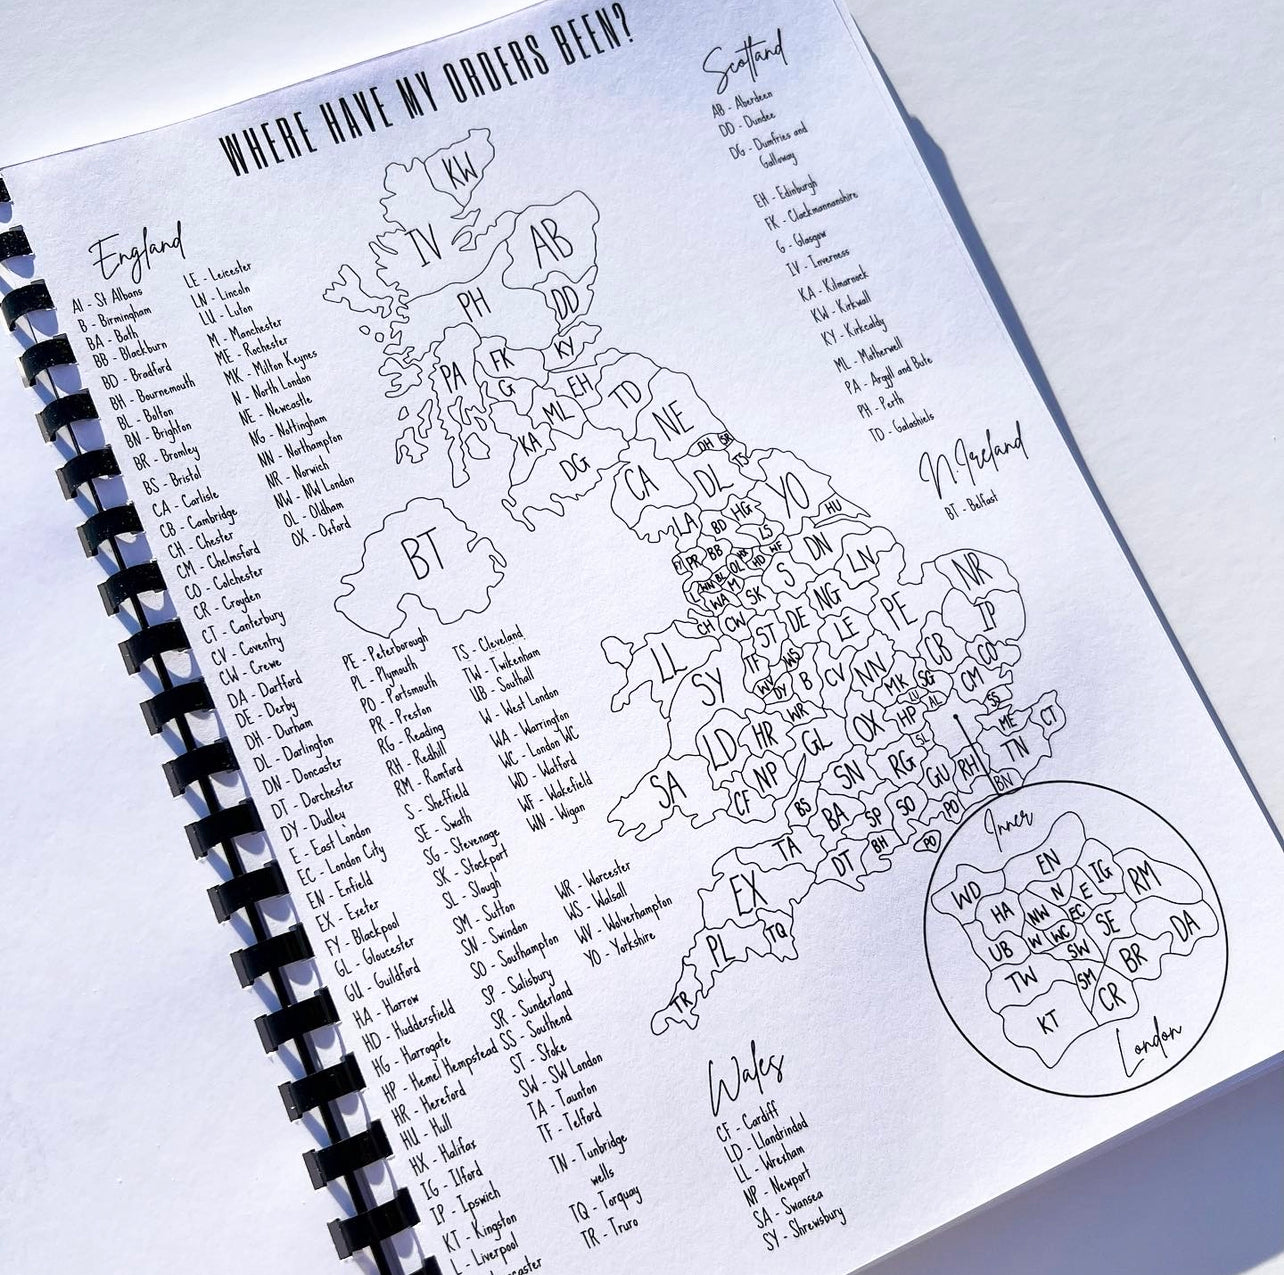 WHERE HAVE MY ORDERS BEEN?
England
AI - St Albans
B - Birmingham
BA - Bath
BB - Blackburn
BD - Bradford
BH - Bournemouth
BL - Bolton
BN - Brighton
BR - Bromley
BS - Bristol
CA - Carlisle
CB - Cambridge
CH - Chester
CM - Chelmsford
CO - Colchester
CR - Croyden
CT - Canterbury
CV - Coventry
CW - Crewe
DA - Dartford
DE - Derby
DH - Durham
DL - Darlington
DN - Doncaster
DT - Dorchester
DY - Dudley
E - East London
EC - London City
EN - Enfield
EX - Exeter
FY - Blackpool
GL - Gloucester
GU - Guildford
HA - Harrow
HD - Huddersfield
HG - Harrogate
HP - Hemel Hempstead
HR - Hereford
HU - Hull
HX - Halifax
IG - Ilford
IP - Ipswich
KT - Kingston
L - Liverpool
LE - Leicester
LN - Lincoln
LU - Luton
M - Manchester
ME - Rochester
MK - Milton Keynes
N - North London
NE - Newcastle
NG - Nottingham
NN - Northampton
NR - Norwich
NW - NW London
OL - Oldham
OX - Oxford
PE - Peterborough
PL - Plymouth
PO - Portsmouth
PR - Preston
RG - Reading
RH - Redhill
RM - Romford
S - Sheffield
SE - Swath
SG - Stevenage
SK - Stockport
SL - Slough
SM - Sutton
SN - Swindon
SO - Southampton
SP - Salisbury
SR - Sunderland
SS - Southend
ST - Stoke
SW - SW London
TA - Taunton
TF - Telford
TN - Tunbridge
wells
TQ - Torquay
TR - Truro
TS - Cleveland
TW - Twikenham
UB - Southall
W - West London
WA - Warrington
WC - London WC
WD - Watford
WF - Wakefield
WN - Wigan
WR - Worcester
WS - Walsall
WV - Wolverhampton
YO - Yorkshire
Scotland
AB - Aberdeen
DD - Dundee
DG - Dumfries and
Galloway
EH - Edinburgh
FK - Clackmannanshire
G - Glasgow
IV - Inverness
KA - Kilmarnock
KW - Kirkwall
KY - Kirkcaddy
ML - Motherwell
PA - Argyll and Bute
PH - Perth
TD - Galashiels
N.Ireland
BT - Belfast
Wales
CF - Cardiff
LD - Llandrindod
LL - Wrexham
NP - Newport
SA - Swansea
SY - Shrewsbury
KW
IV
AB
PH
DD
KY
FK
PA
G
EH
ML
TD
KA
NE
DG
CA
DH
SR
TS
DL
YO
HU
BT
LA
BD
HG
LS
FY
PR
BB
HX
WF
HD
OL
BL
WN
L
M
WA
SK
S
DN
LN
CH
CW
ST
DE
NG
PE
NR
IP
LL
SY
TF
WS
WV
DY
B
LE
CV
NN
CB
CO
CM
MK
SG
LU
AL
HP
SL
SS
ME
CT
LD
HR
WR
GL
OX
SA
CF
NP
SN
RG
GU
RH
TN
BN
BS
BA
SP
SO
PO
TA
DT
BH
PO
EX
PL
TQ
TR
Inner
London
WD
EN
IG
RM
HA
N
E
NW
EC
UB
W
WC
SE
DA
TW
SW
BR
SM
KT
CR